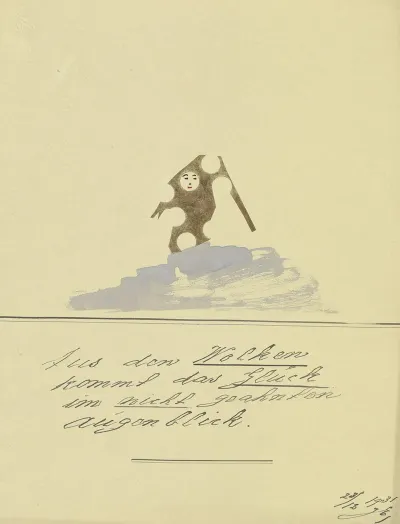 Aus den Wolken
kommt das Glück
im nicht geahnten
augenblick.